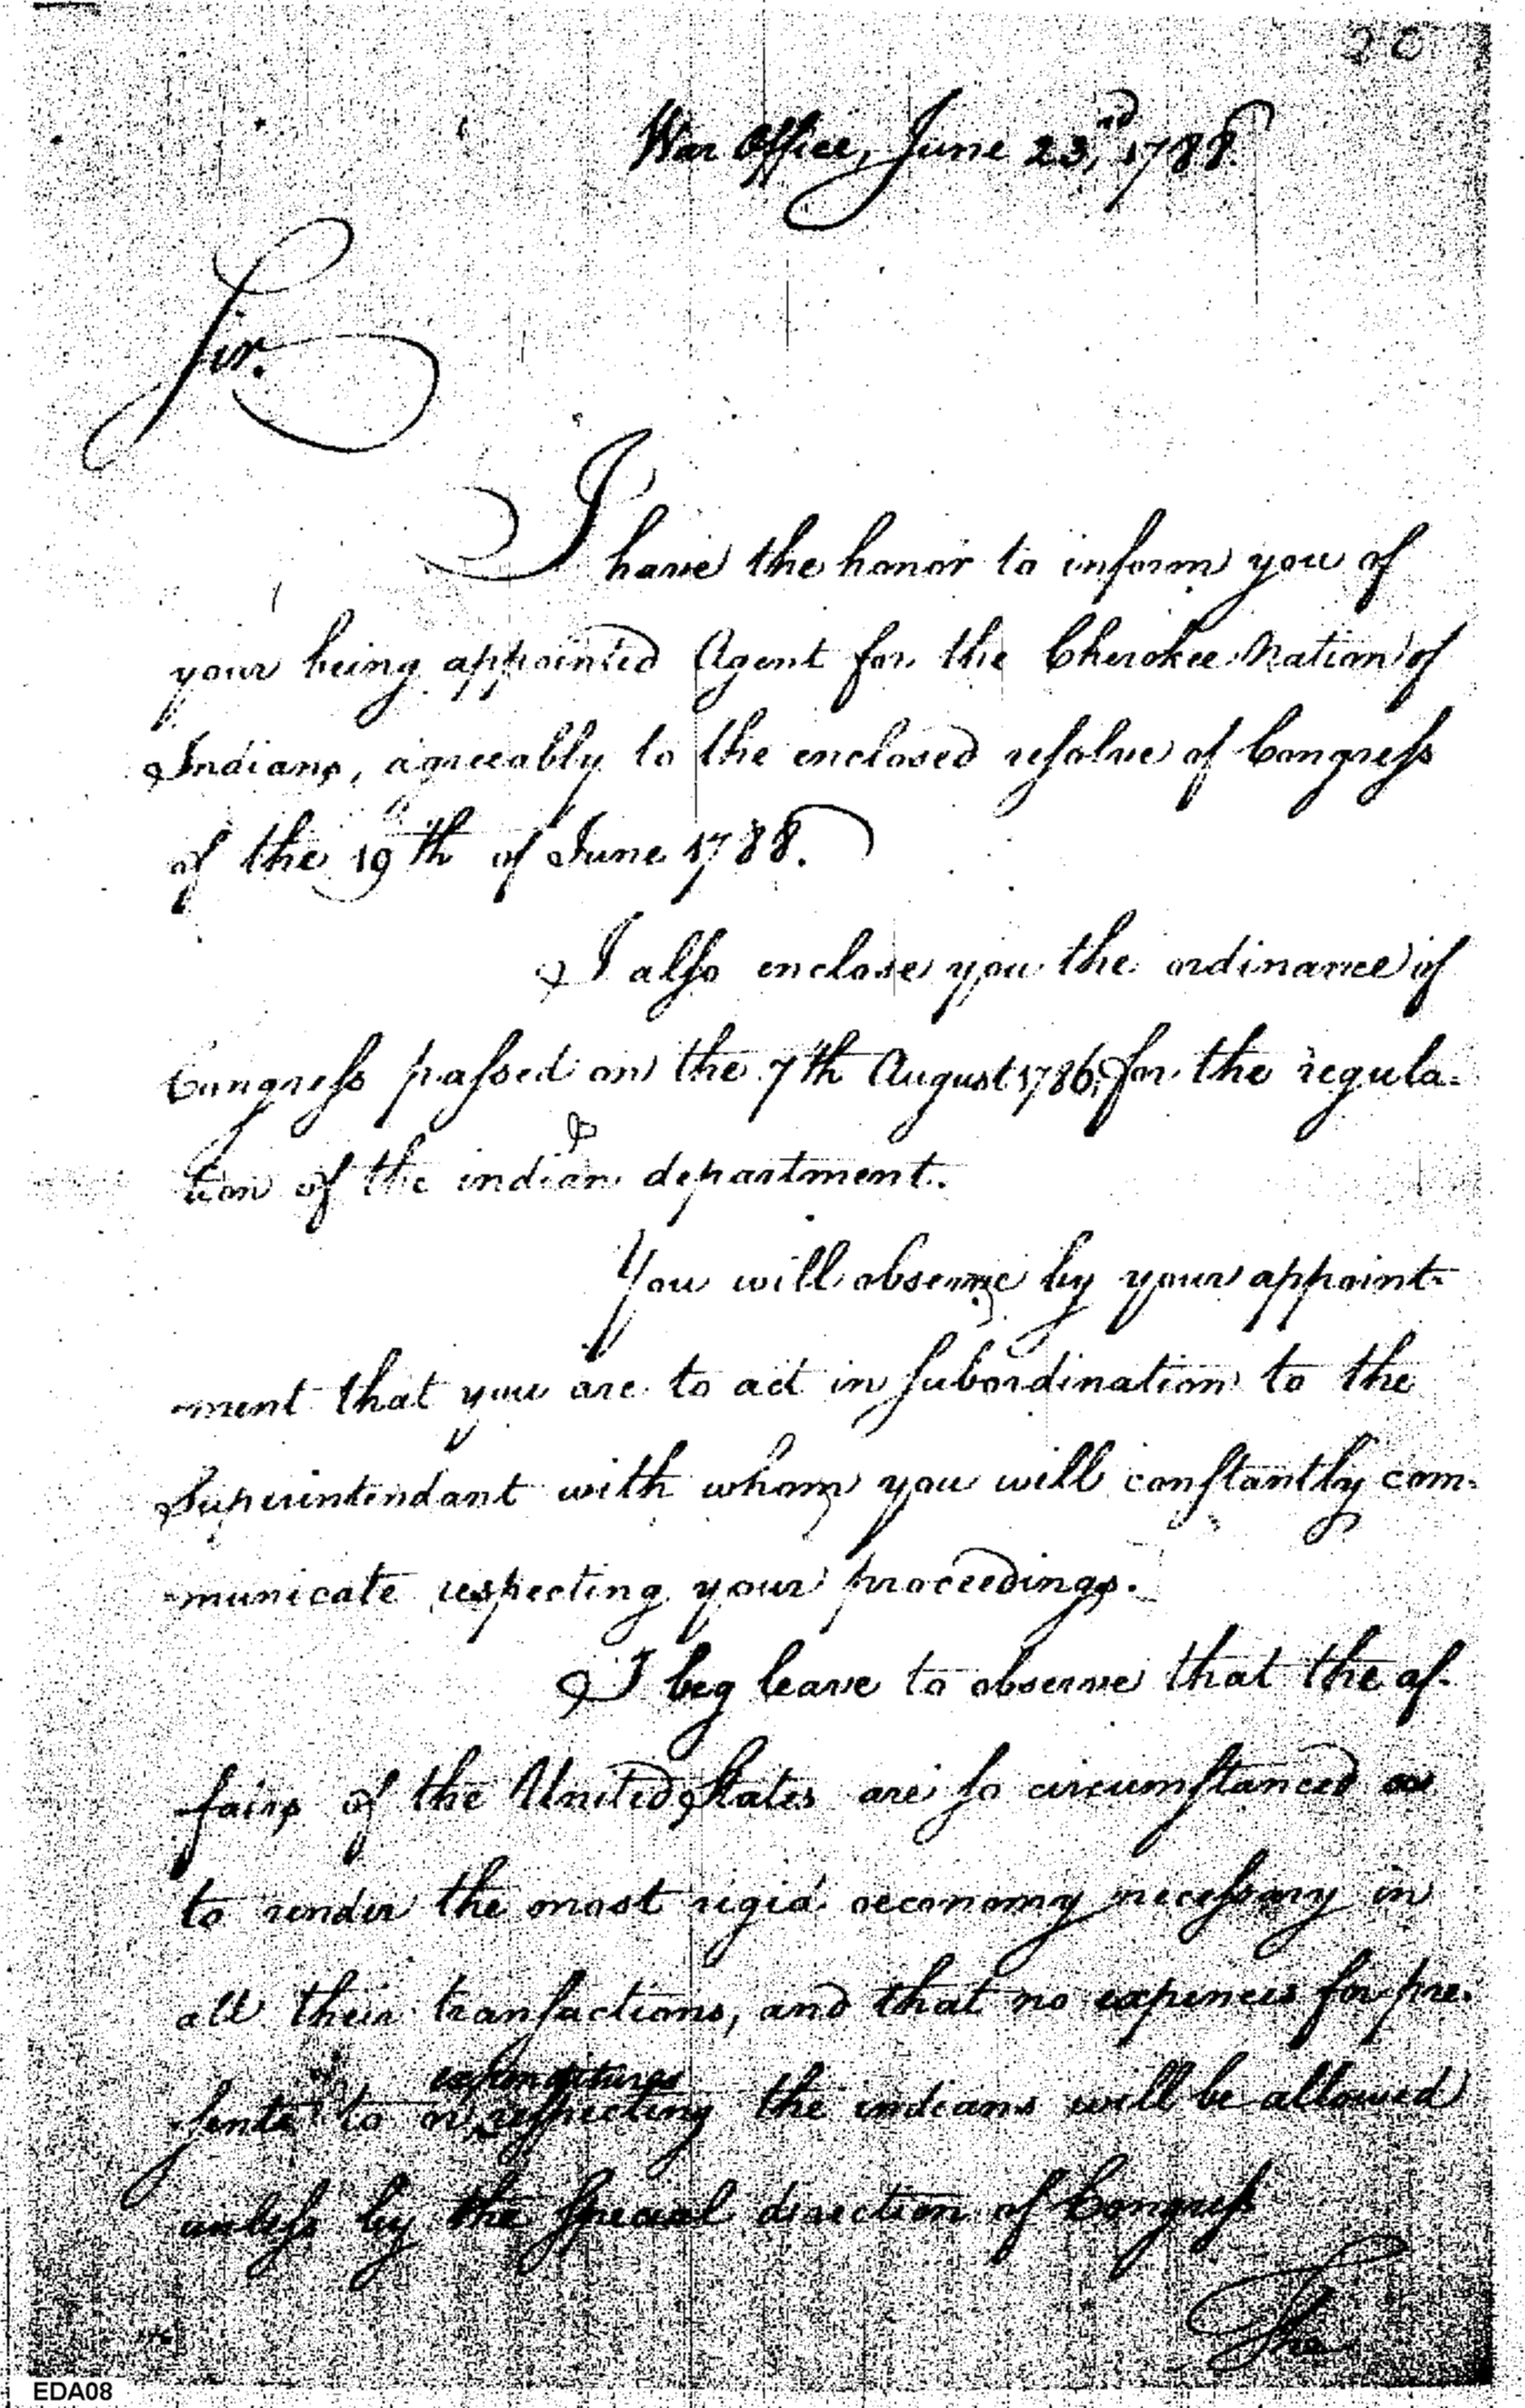 20
War Office, June 23rd, 1788.
Sir.
I have the honor to inform you of
your being appointed Agent for the Cherokee Nation of
Indians, agreeably to the enclosed resolve of Congress
of the 19th of June 1788.
I also enclose you the ordinance of
Congress passed on the 7th August 1786, for the regula-
tion of the indian department.
You will observe by your appoint-
-ment that you are to act in subordination to the
Superintendant with whom you will constantly com-
-municate respecting your proceedings.
I beg leave to observe that the af-
-fairs of the United States are so circumstanced as
to render the most rigid oeconomy necessary in
all their transactions, and that no expences for pre-
expenditures
-sents to or respecting the indians will be allowed
unless by the special direction of Congress
The
EDA08